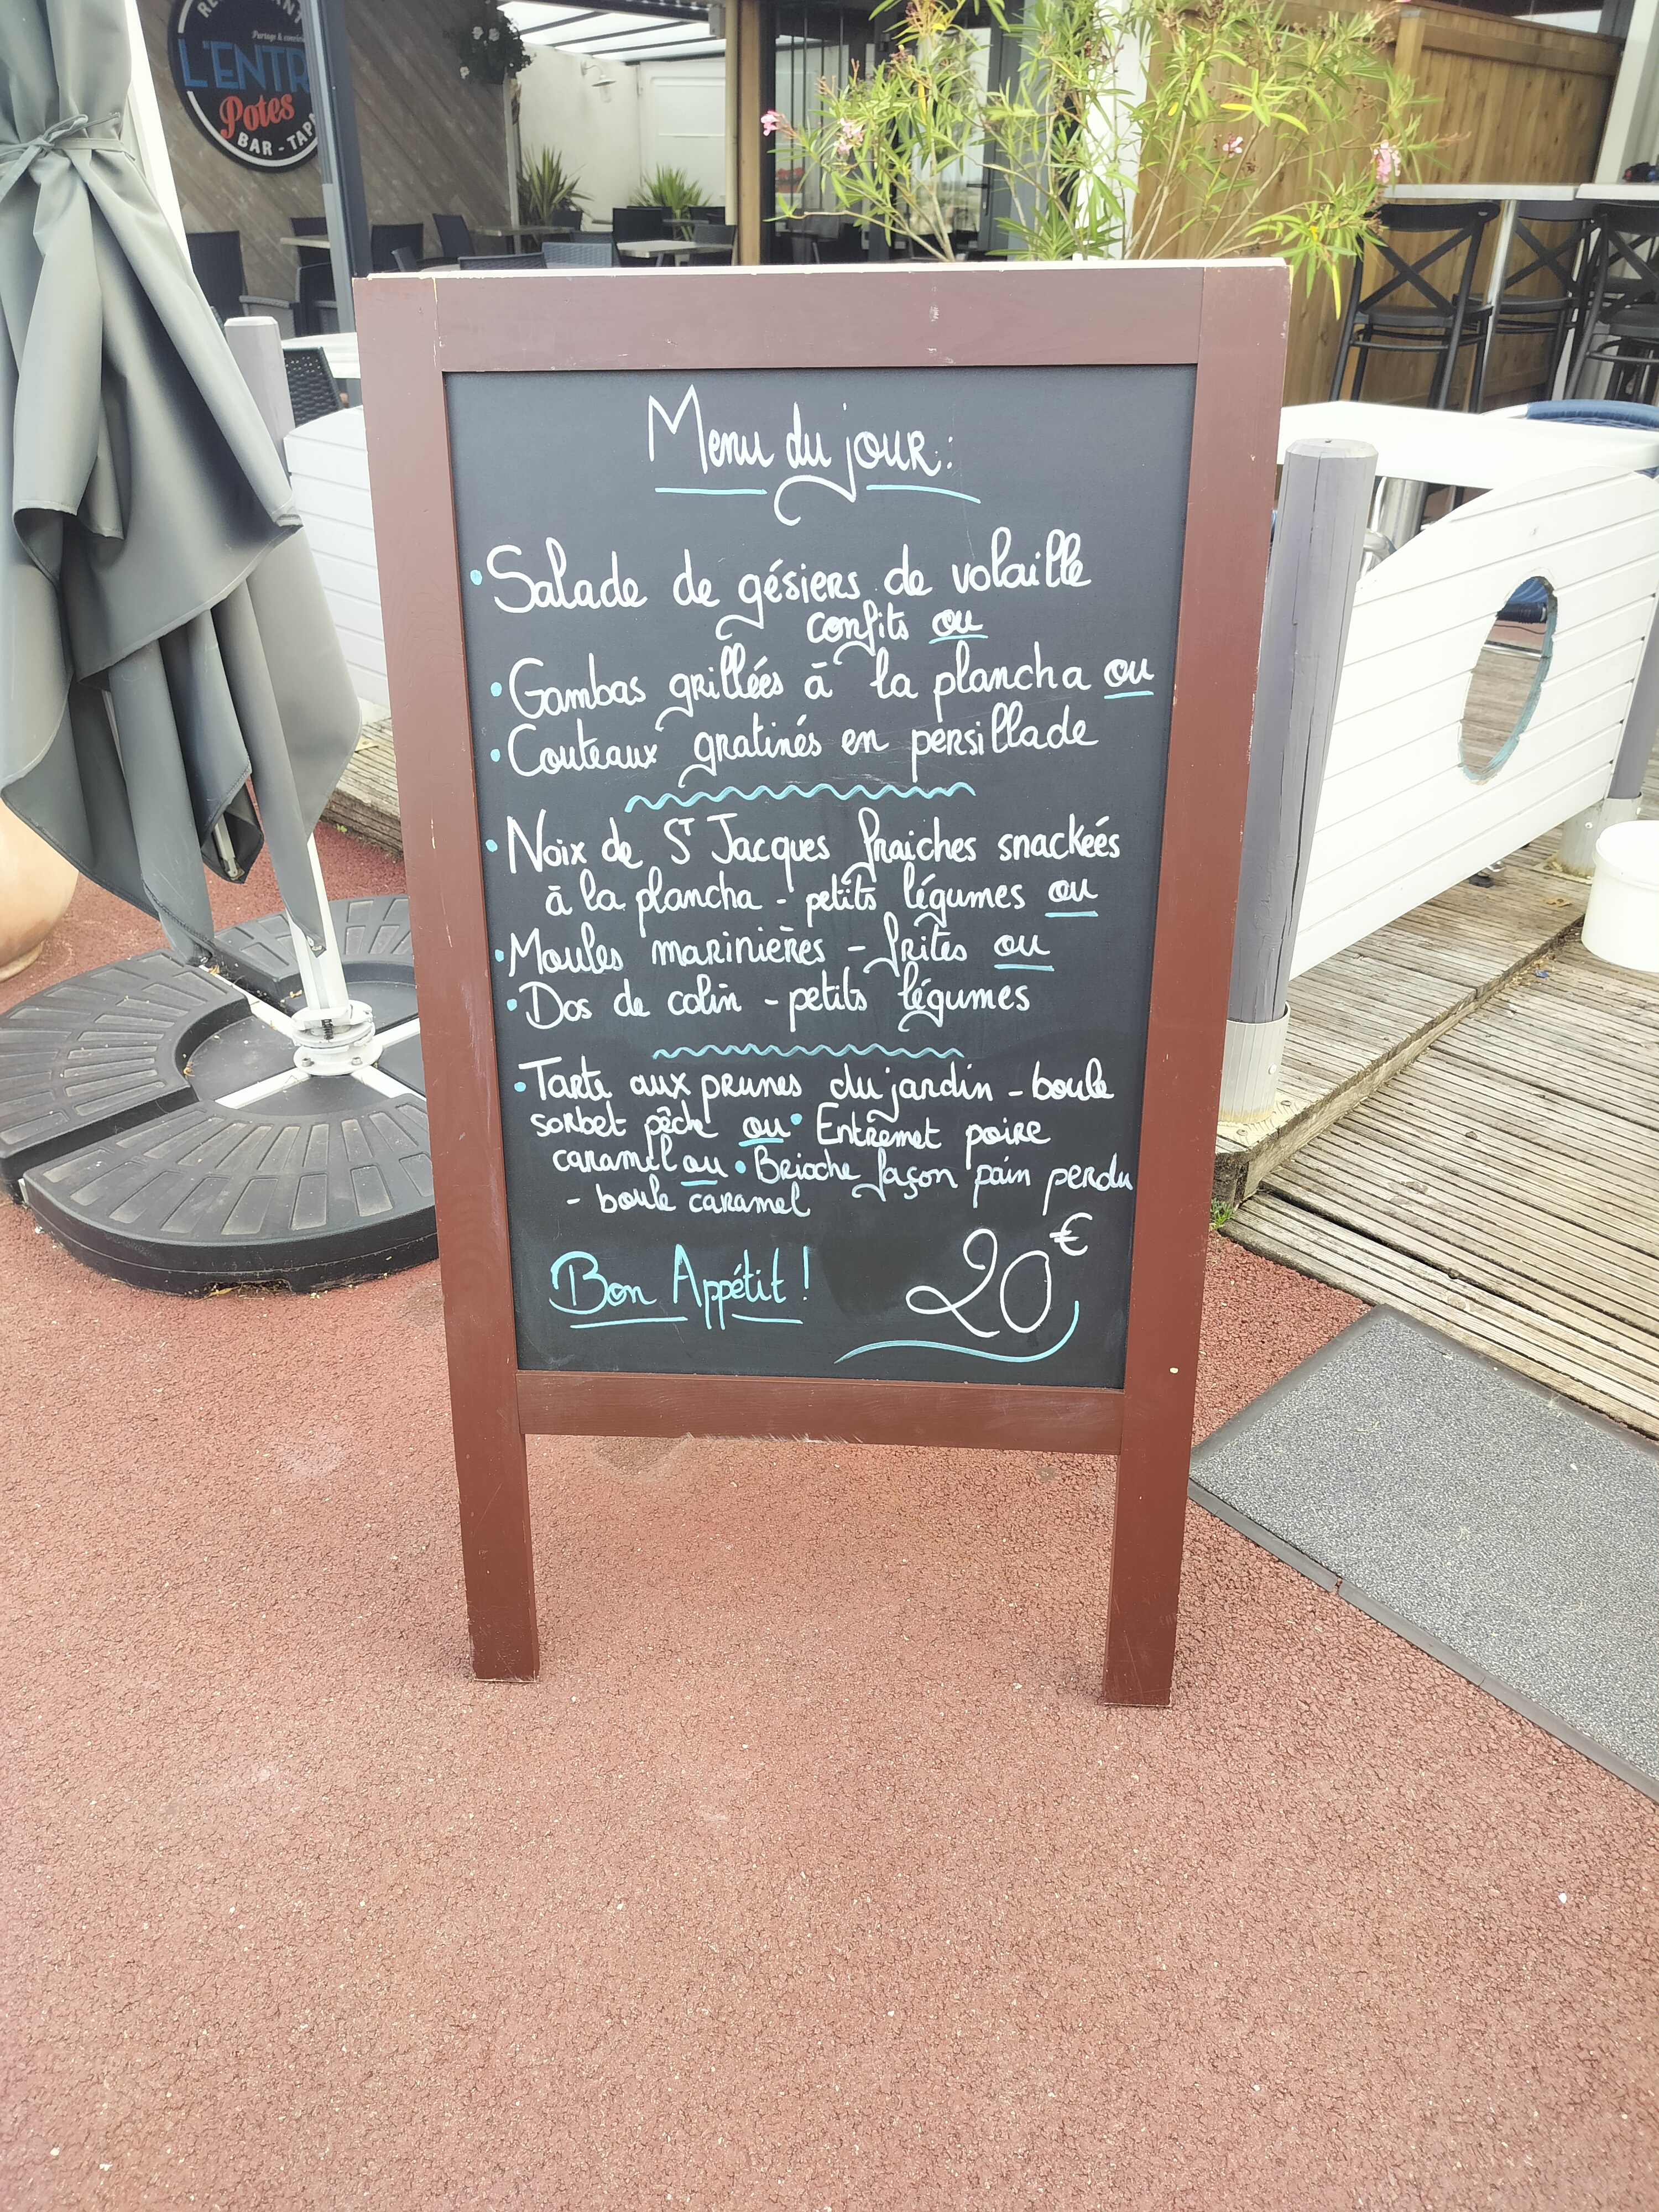 L'ENTR
Potes
BAR - TAPA
Menu du jour :
• Salade de gésiers de volaille
confits ou
• Gambas grillées à la plancha ou
• Couteaux gratinés en persillade
• Noix de St Jacques fraiches snackées
à la plancha - petits légumes ou
• Moules marinières - frites ou
• Dos de colin - petits légumes
• Tarte aux prunes du jardin - boule
sorbet pêche ou • Entremet poire
caramel ou • Brioche façon pain perdu
- boule caramel
Bon Appétit !
20€